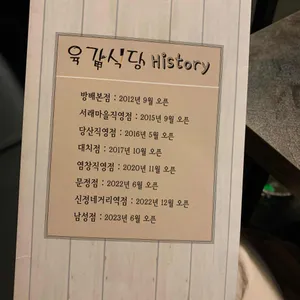 육갑식당 History
방배본점 : 2012년 9월 오픈
서래마을직영점 : 2015년 9월 오픈
당산직영점 : 2016년 5월 오픈
대치점 : 2017년 10월 오픈
염창직영점 : 2020년 11월 오픈
문정점 : 2022년 6월 오픈
신정네거리역점 : 2022년 12월 오픈
남성점 : 2023년 6월 오픈